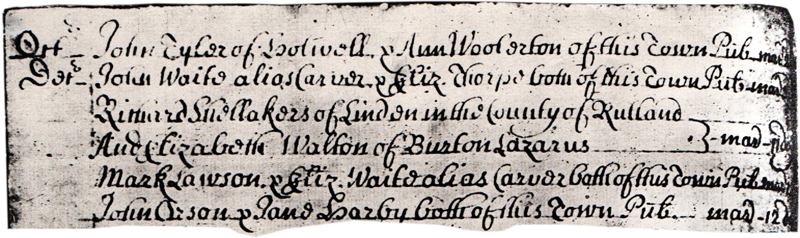 Oct John Tyler of Holwell. & Ann Woolerton of this Town Pub mar
Decr John Waite alias Carver. & Eliz Thorpe both of this Town Pub mar
Richard Shellakers of Linden in the County of Rutland
And Elizabeth Walton of Burton Lazarus mar 11
Mark Lawson. & Eliz. Waite alias Carver both of this Town Pub mar
John Orson & Jane Harby both of this Town Pub. mar 12